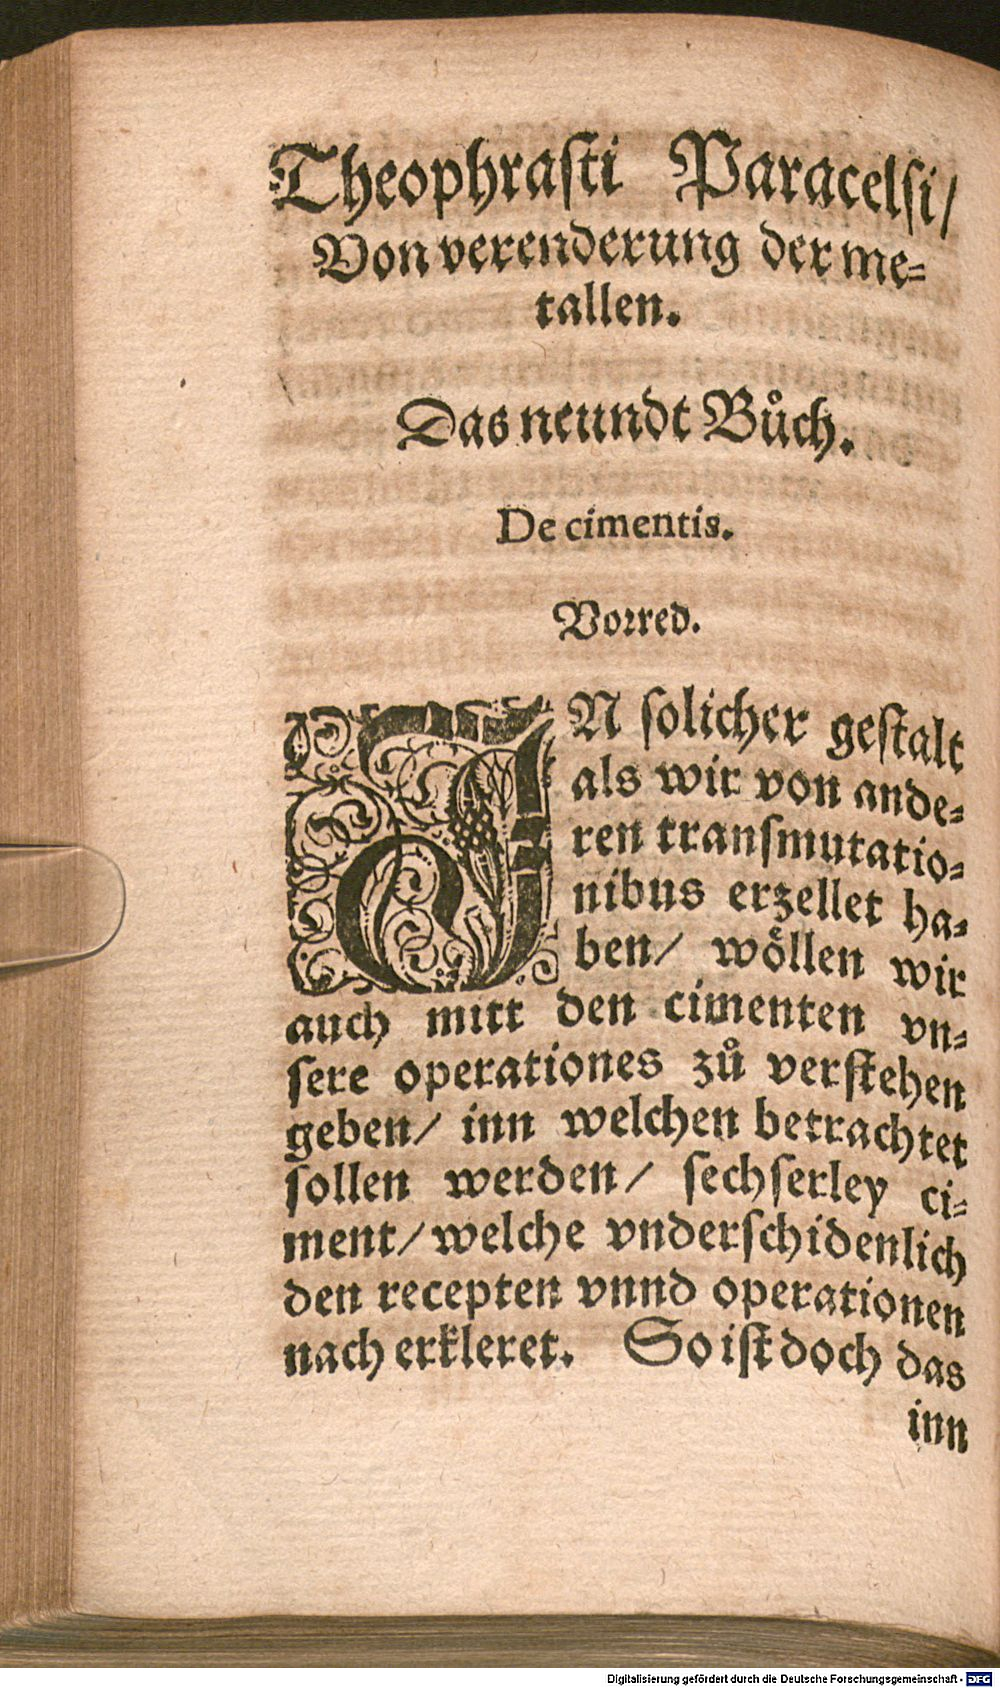 Theophrasti Paracelsi/
Von verenderung der me-
tallen.
Das neundt Bůch.
De cimentis.
Vorred.
IN solicher gestalt
als wir von ande-
ren transmutatio-
nibus erzellet ha-
ben/ wöllen wir
auch mitt den cimenten vn-
sere operationes zů verstehen
geben/ inn welchen betrachtet
sollen werden/ sechserley ci-
ment/ welche vnderschidenlich
den recepten vnnd operationen
nach erkleret. So ist doch das
inn
Digitalisierung gefördert durch die Deutsche Forschungsgemeinschaft - DFG